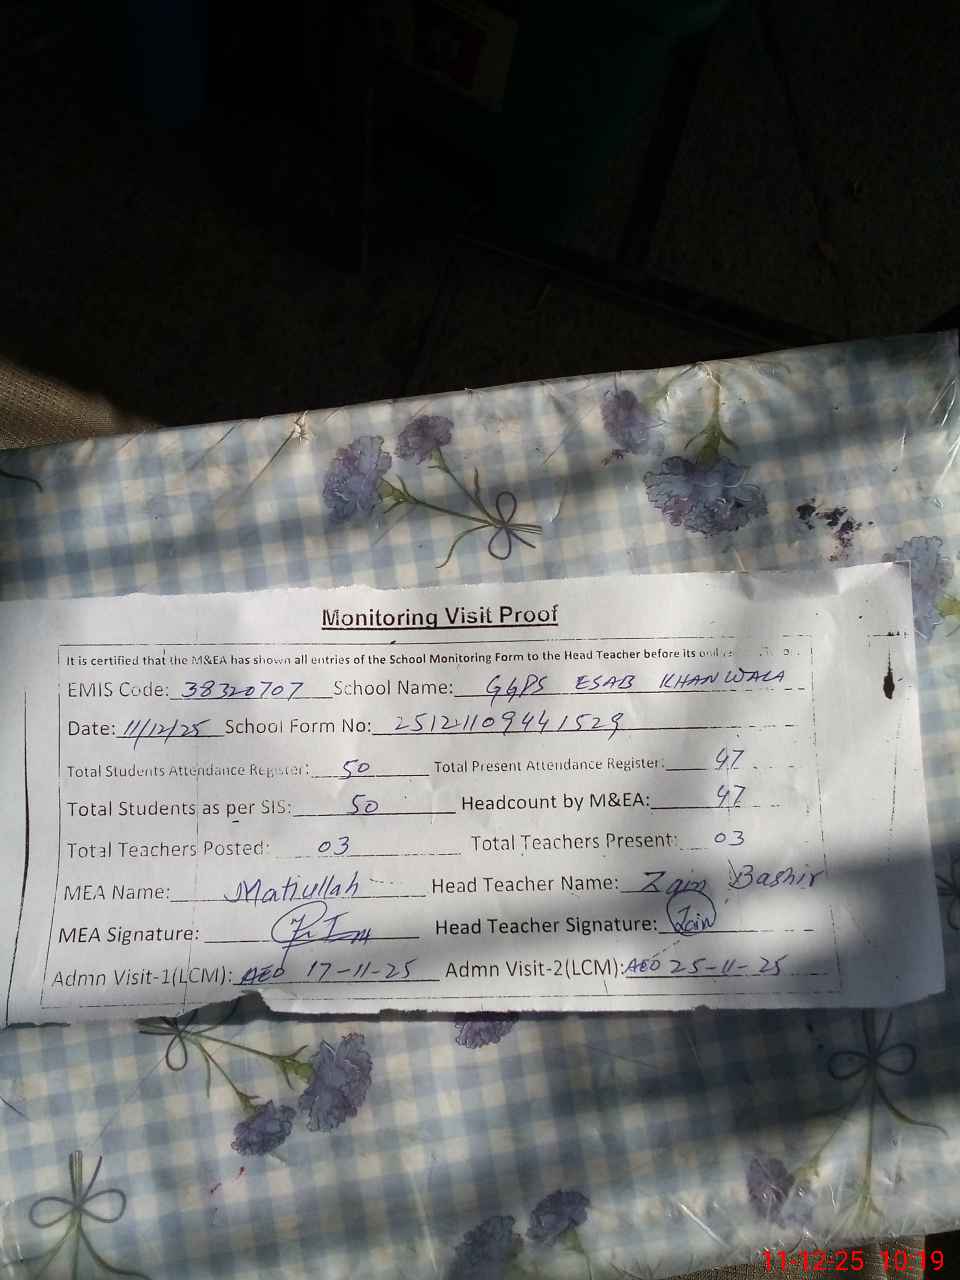 Monitoring Visit Proof
It is certified that the M&EA has shown all entries of the School Monitoring Form to the Head Teacher before its
EMIS Code: 38320707 School Name: GGPS ESAB KHAN WALA
Date: 11/12/25 School Form No: 25121109441529
Total Students Attendance Register: 50 Total Present Attendance Register: 47
Total Students as per SIS: 50 Headcount by M&EA: 47
Total Teachers Posted: 03 Total Teachers Present: 03
MEA Name: Matiullah Head Teacher Name: Zain Bashir
MEA Signature: Head Teacher Signature: Zain
Admn Visit-1(LCM): AEO 17-11-25 Admn Visit-2(LCM): AEO 25-11-25
11-12-25 10:19